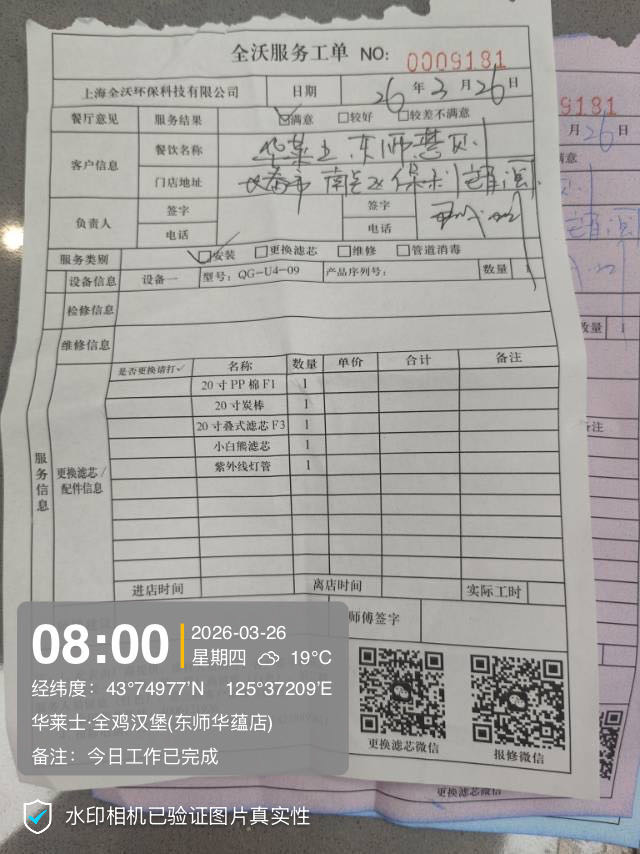 全沃服务工单 NO: 0009181
上海全沃环保科技有限公司 日期 26 年 3 月 26 日
餐厅意见 服务结果 ☑满意 □较好 □较差不满意
客户信息 餐饮名称 华莱士东师
门店地址 长春市 南
负责人 签字 签字
电话 电话
服务类别 ☑安装 □更换滤芯 □维修 □管道消毒
设备信息 设备一 型号: QG-U4-09 产品序列号: 数量 1
检修信息
维修信息
服务信息
更换滤芯/配件信息
是否更换请打✓ 名称 数量 单价 合计 备注
20寸PP棉F1 1
20寸炭棒 1
20寸叠式滤芯F3 1
小白熊滤芯 1
紫外线灯管 1
进店时间 离店时间 实际工时
师傅签字
更换滤芯微信 报修微信
9181
月 26 日
满意
数量 1
备注
更换滤芯微信
08:00 2026-03-26
星期四 19°C
经纬度: 43°74977'N 125°37209'E
华莱士·全鸡汉堡(东师华蕴店)
备注: 今日工作已完成
水印相机已验证图片真实性